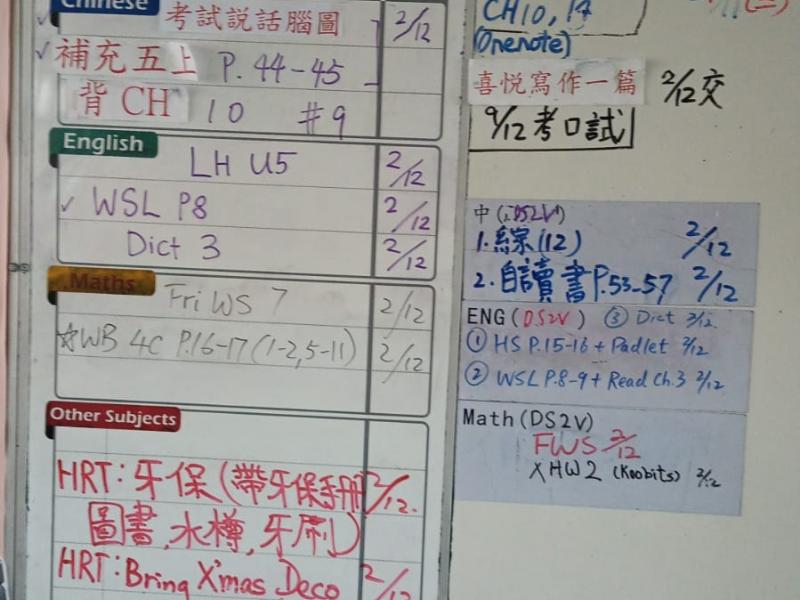 Chinese
考試説話腦圖 2/12
✓ 補充五上 P.44-45
背 CH 10 #9
English
LH U5 2/12
✓ WSL P8 2/12
Dict 3 2/12
Maths
Fri WS 7 2/12
☆WB 4C P.16-17(1-2,5-11) 2/12
Other Subjects
HRT:牙保(帶牙保手冊 2/12.
圖書,水樽,牙刷)
HRT:Bring X'mas Deco 2/12
CH10,
(Onenote)
喜悦寫作一篇 2/12交
9/12考口試
中(DS2V)
1.綜(12) 2/12
2.自讀書P.53-57 2/12
ENG(DS2V) ③ Dict 2/12
① HS P.15-16+Padlet 2/12
② WSL P.8-9+Read Ch.3 2/12
Math(DS2V)
FWS 2/12
XHW2 (Koobits) 2/12